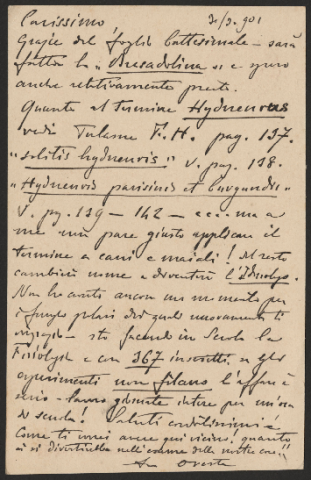 Carissimo, 3/3.901
Grazie del foglio battesimale - sarà
fatta la "Bresadolina" e spero
anche relativamente presto.
Quanto al termine Hydnenvus
vedi Tulasne F. H. pag. 137.
"solitis hydnenvis" V. pag. 138.
"Hydnenvis parisinis et burgundis"
V. pg. 139 - 142 - ecc. ma a
me non pare giusto applicare il
termine a cani e maiali! Del resto
cambierò nome e diventerà l'
Non ho avuto ancora un momento per
i funghi dei quali nuovamente ti
ringrazio - sto facendo in Scuola la
Fisiologia e con 367 inscritti, se gli
esperimenti non filano l'affare è
serio - lavoro giornate intere per un'ora
di scuola! Saluti cordialissimi e
Come ti vorrei avere qui vicino, quanto
ci si divertirebbe nell'esame delle nostre cose!!
Oreste